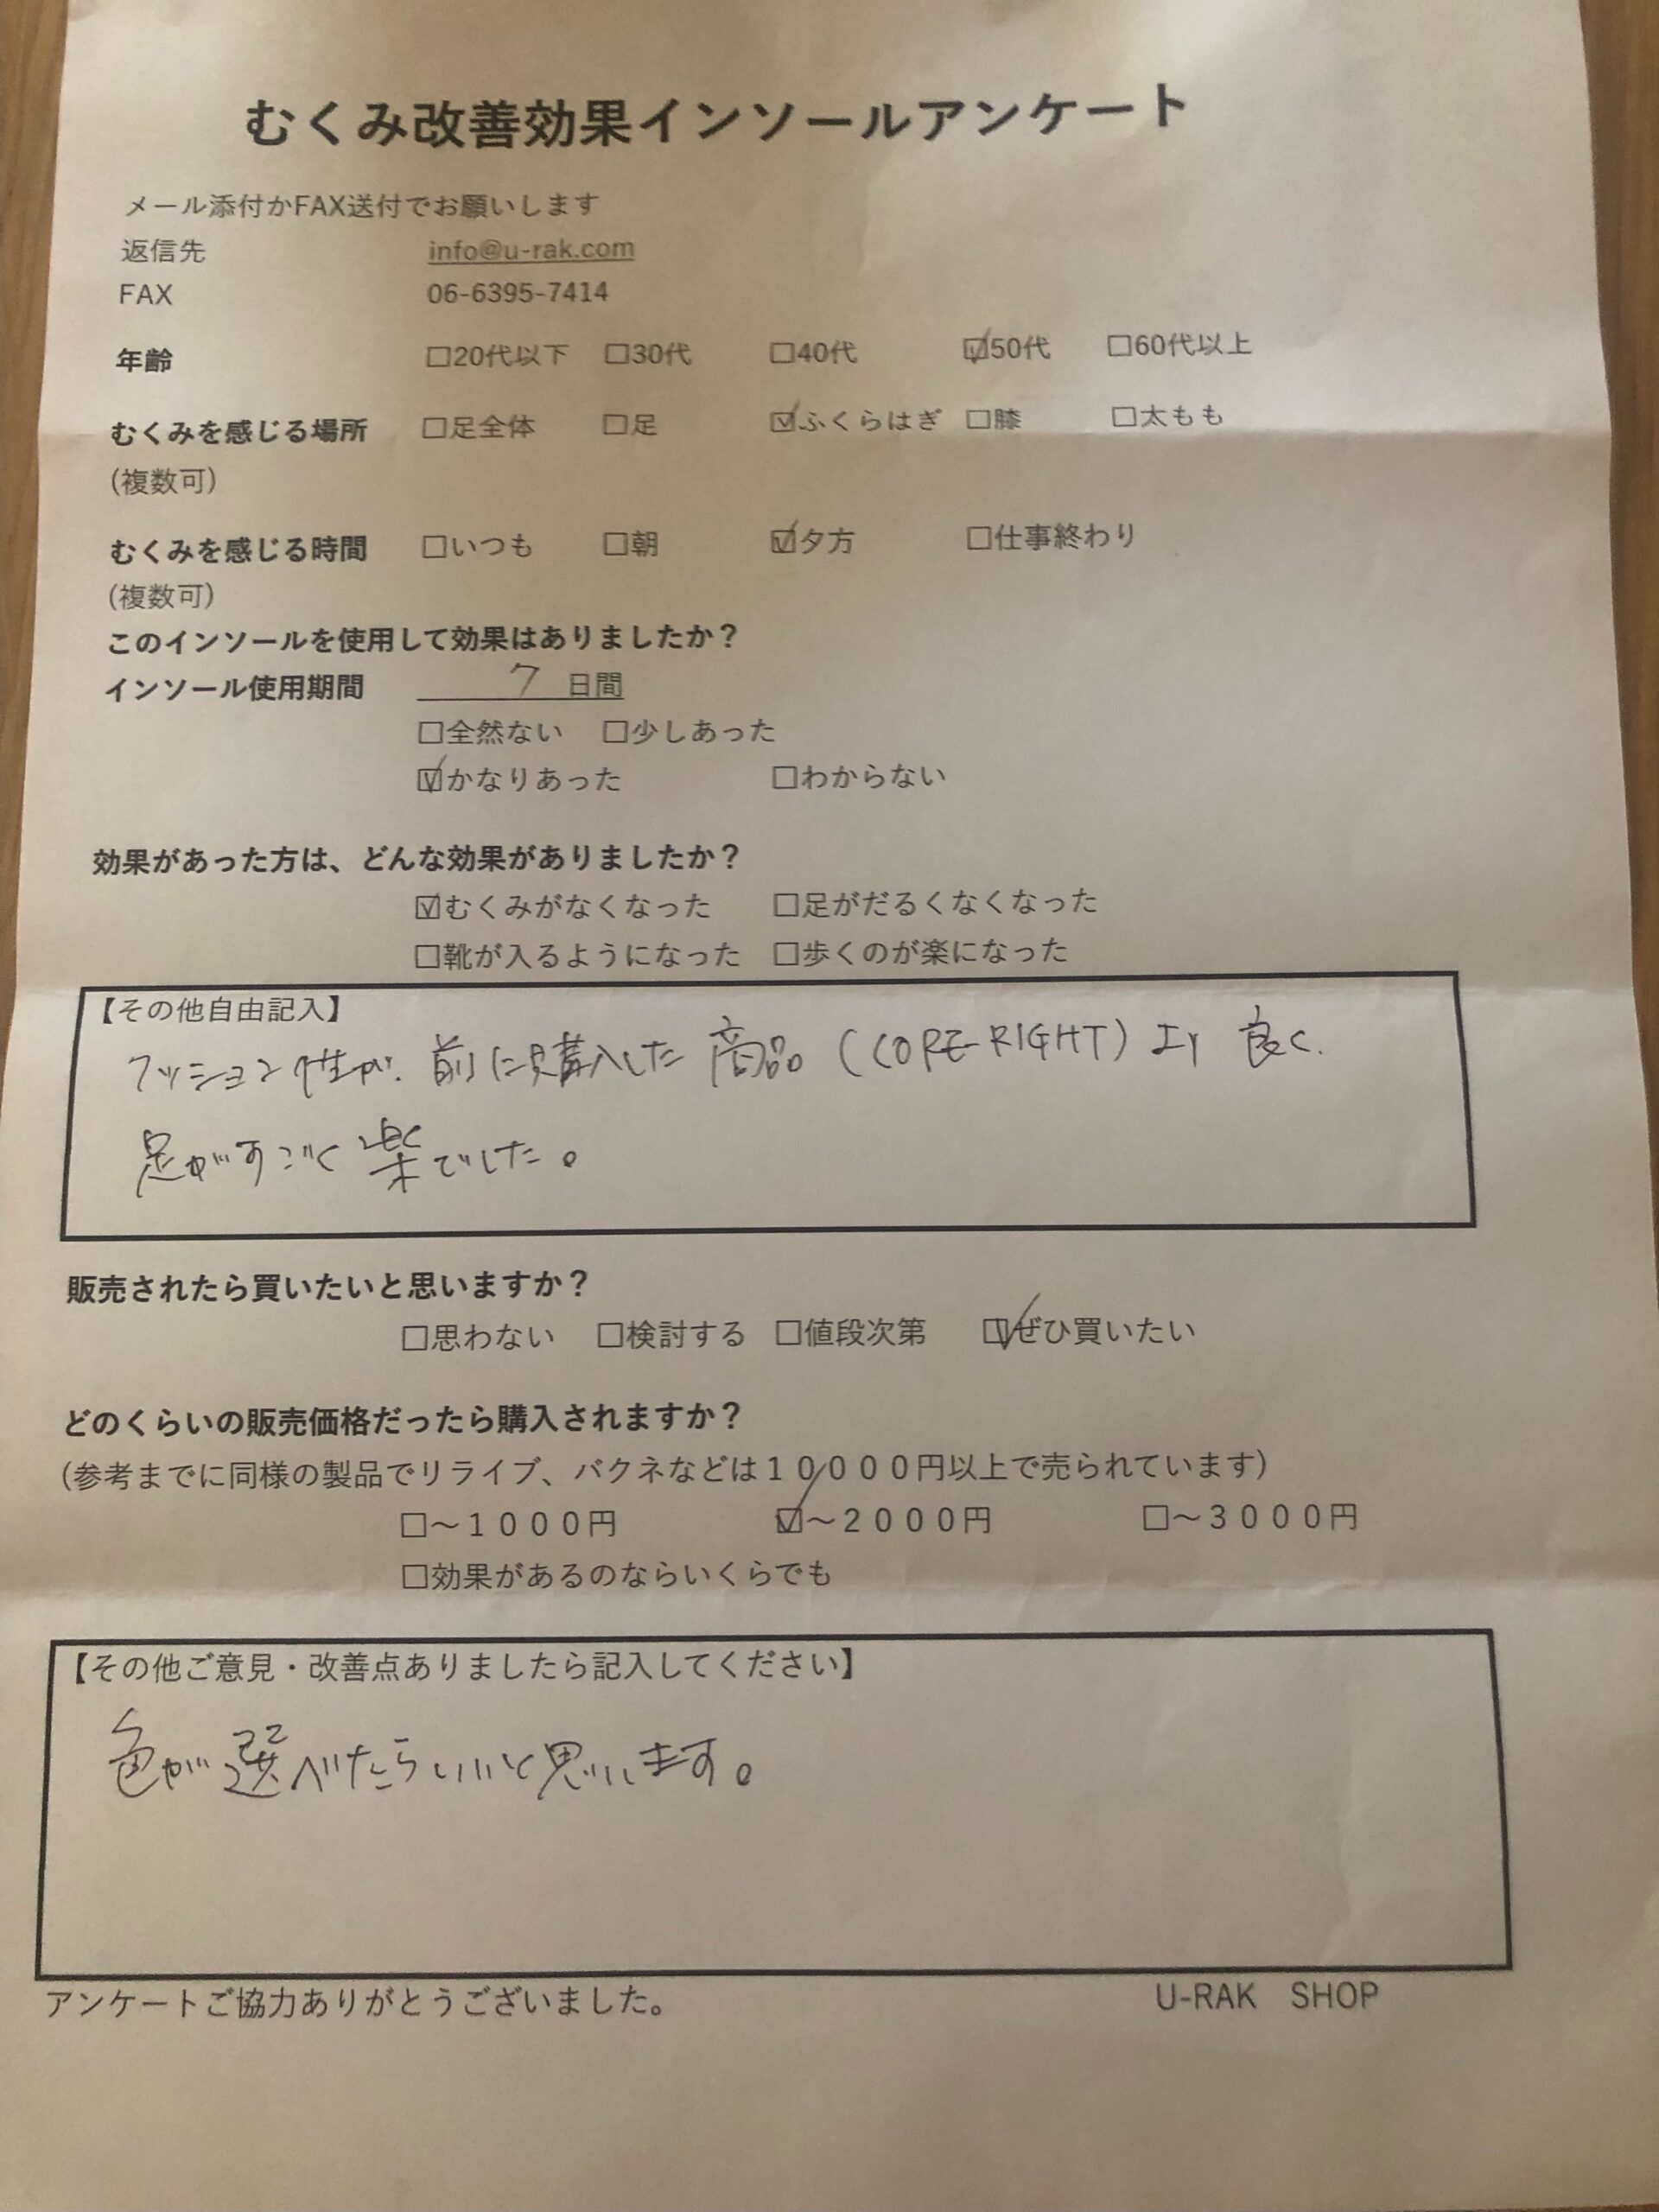 むくみ改善効果インソールアンケート
メール添付かFAX送付でお願いします
返信先 info@u-rak.com
FAX 06-6395-7414
年齢 □20代以下 □30代 □40代 ☑50代 □60代以上
むくみを感じる場所 □足全体 □足 ☑ふくらはぎ □膝 □太もも
(複数可)
むくみを感じる時間 □いつも □朝 ☑夕方 □仕事終わり
(複数可)
このインソールを使用して効果はありましたか？
インソール使用期間 7 日間
□全然ない □少しあった
☑かなりあった □わからない
効果があった方は、どんな効果がありましたか？
☑むくみがなくなった □足がだるくなくなった
□靴が入るようになった □歩くのが楽になった
【その他自由記入】
クッション性が、前に購入した商品（CORE-RIGHT）より良く、
足がすごく楽でした。
販売されたら買いたいと思いますか？
□思わない □検討する □値段次第 ☑ぜひ買いたい
どのくらいの販売価格だったら購入されますか？
(参考までに同様の製品でリライブ、バクネなどは１００００円以上で売られています)
□～１０００円 ☑～２０００円 □～３０００円
□効果があるのならいくらでも
【その他ご意見・改善点ありましたら記入してください】
色が選べたらいいと思います。
アンケートご協力ありがとうございました。 U-RAK SHOP